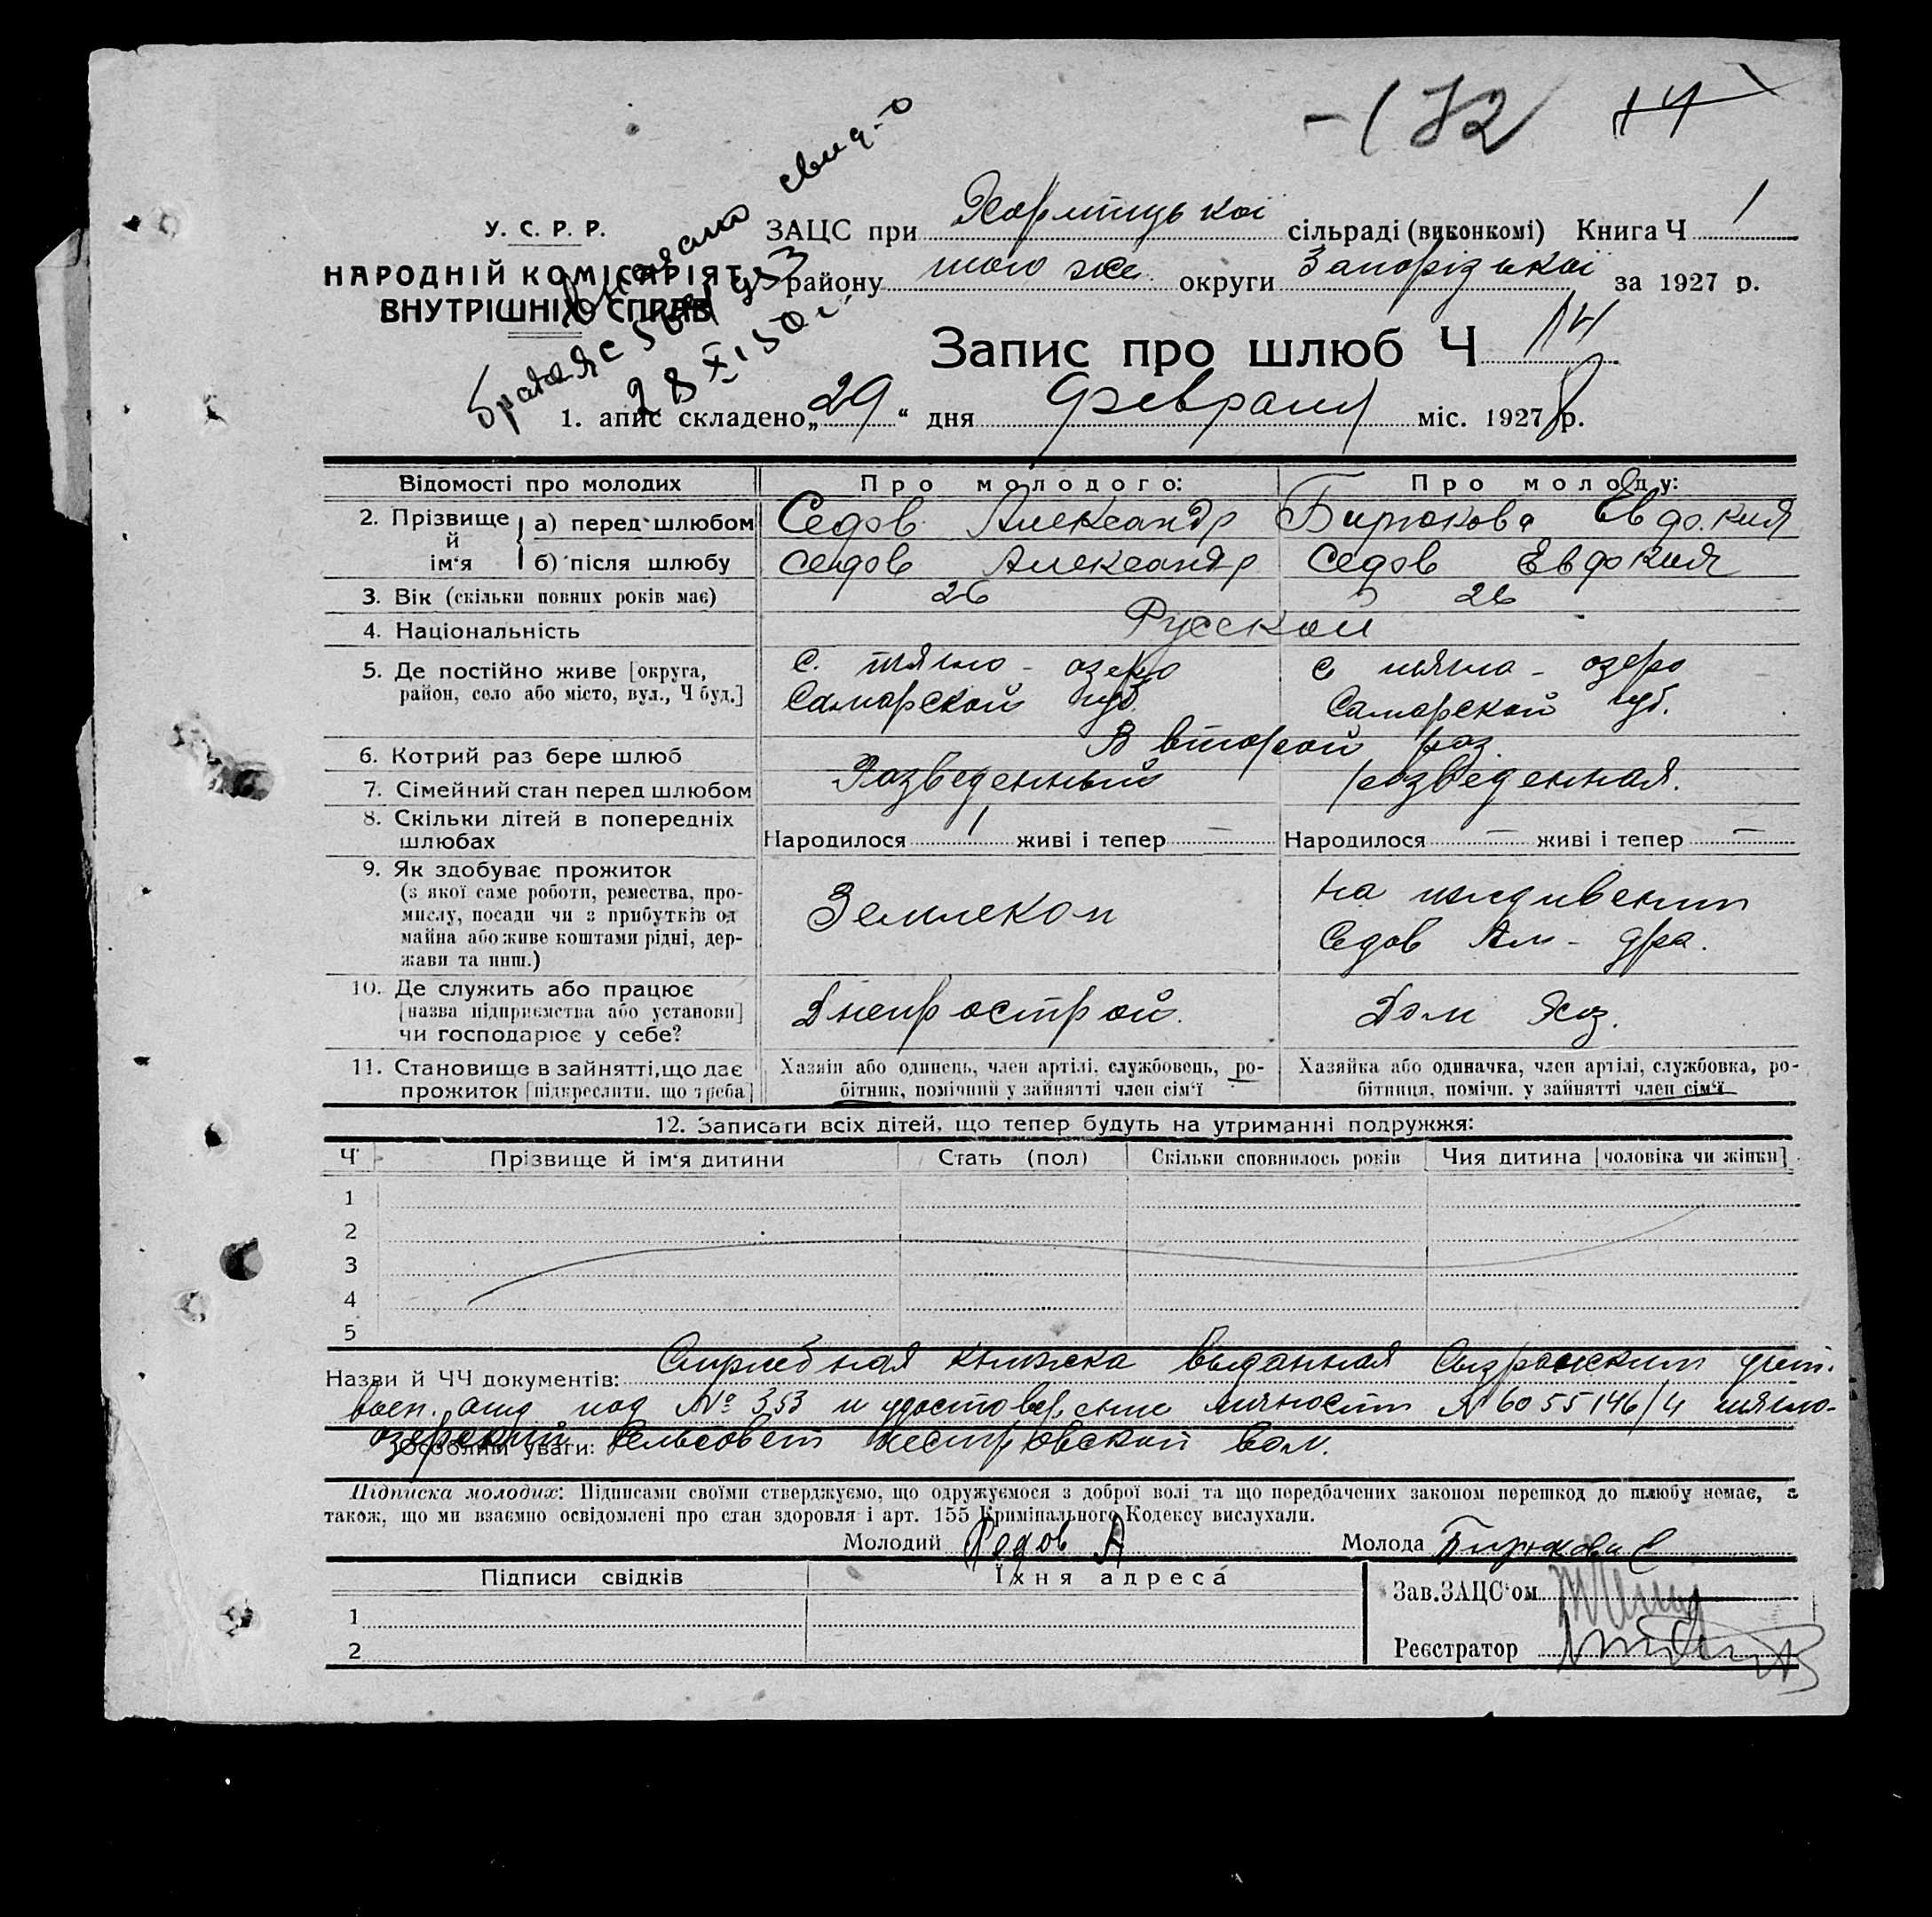 -172 14
свид-о
У. С. Р. Р.
НАРОДНІЙ КОМІСАРІЯТ
ВНУТРІШНІХ СПРАВ
28 XI 50 г.
ЗАЦС при Хортицькоі сільраді (виконкомі) Книга Ч 1
району того же округи Запорізькоі за 1927 р.
Запис про шлюб Ч 14
1. апис складено „29“ дня Февраля міс. 1927 8 р.
Відомості про молодих Про молодого: Про молоду:
2. Прізвище й ім'я а) перед шлюбом Седов Александр Бирюкова Евдокия
б) після шлюбу Седов Александр Седов Евдокия
3. Вік (скільки повних років має) 26 26
4. Національність Русской
5. Де постійно живе [округа, район, село або місто, вул., Ч буд.] с. тягло-озеро с тягло-озеро
Самарской губ. Самарской губ.
6. Котрий раз бере шлюб В второй раз.
7. Сімейний стан перед шлюбом Разведенный разведенная.
8. Скільки дітей в попередніх шлюбах Народилося 1 живі і тепер — Народилося — живі і тепер —
9. Як здобуває прожиток
(з якої саме роботи, ремества, про-
мислу, посади чи з прибутків од
майна або живе коштами рідні, дер-
жави та инш.)
Землекоп на иждивении
Седов Ал-дра.
10. Де служить або працює
[назва підприємства або установи]
чи господарює у себе?
Днепрострой. Дом Хоз.
11. Становище в зайнятті, що дає
прожиток [підкреслити, що треба]
Хазяін або одинець, член артілі, службовець, ро-
бітник, помічний у зайнятті член сім'ї
Хазяйка або одиначка, член артілі, службовка, ро-
бітниця, помічн. у зайнятті член сім'ї
12. Записати всіх дітей, що тепер будуть на утриманні подружжя:
Ч Прізвище й ім'я дитини Стать (пол) Скільки сповнилось років Чия дитина [чоловіка чи жінки]
1
2
3
4
5
Назви й ЧЧ документів: Служебная книжка выданная Сызранским
воен. под № 353 и удостоверение личности № 6055146/4 тягло-
озерский сельсовет вол.
Особливі уваги:
Підписка молодих: Підписами своїми стверджуємо, що одружуємося з доброї волі та що передбачених законом перешкод до шлюбу немає, а
також, що ми взаємно освідомлені про стан здоровля і арт. 155 Кримінального Кодексу вислухали.
Молодий Седов А Молода Бирюкова Е
Підписи свідків Їхня адреса
Зав.ЗАЦС'ом
1
Реєстратор
2